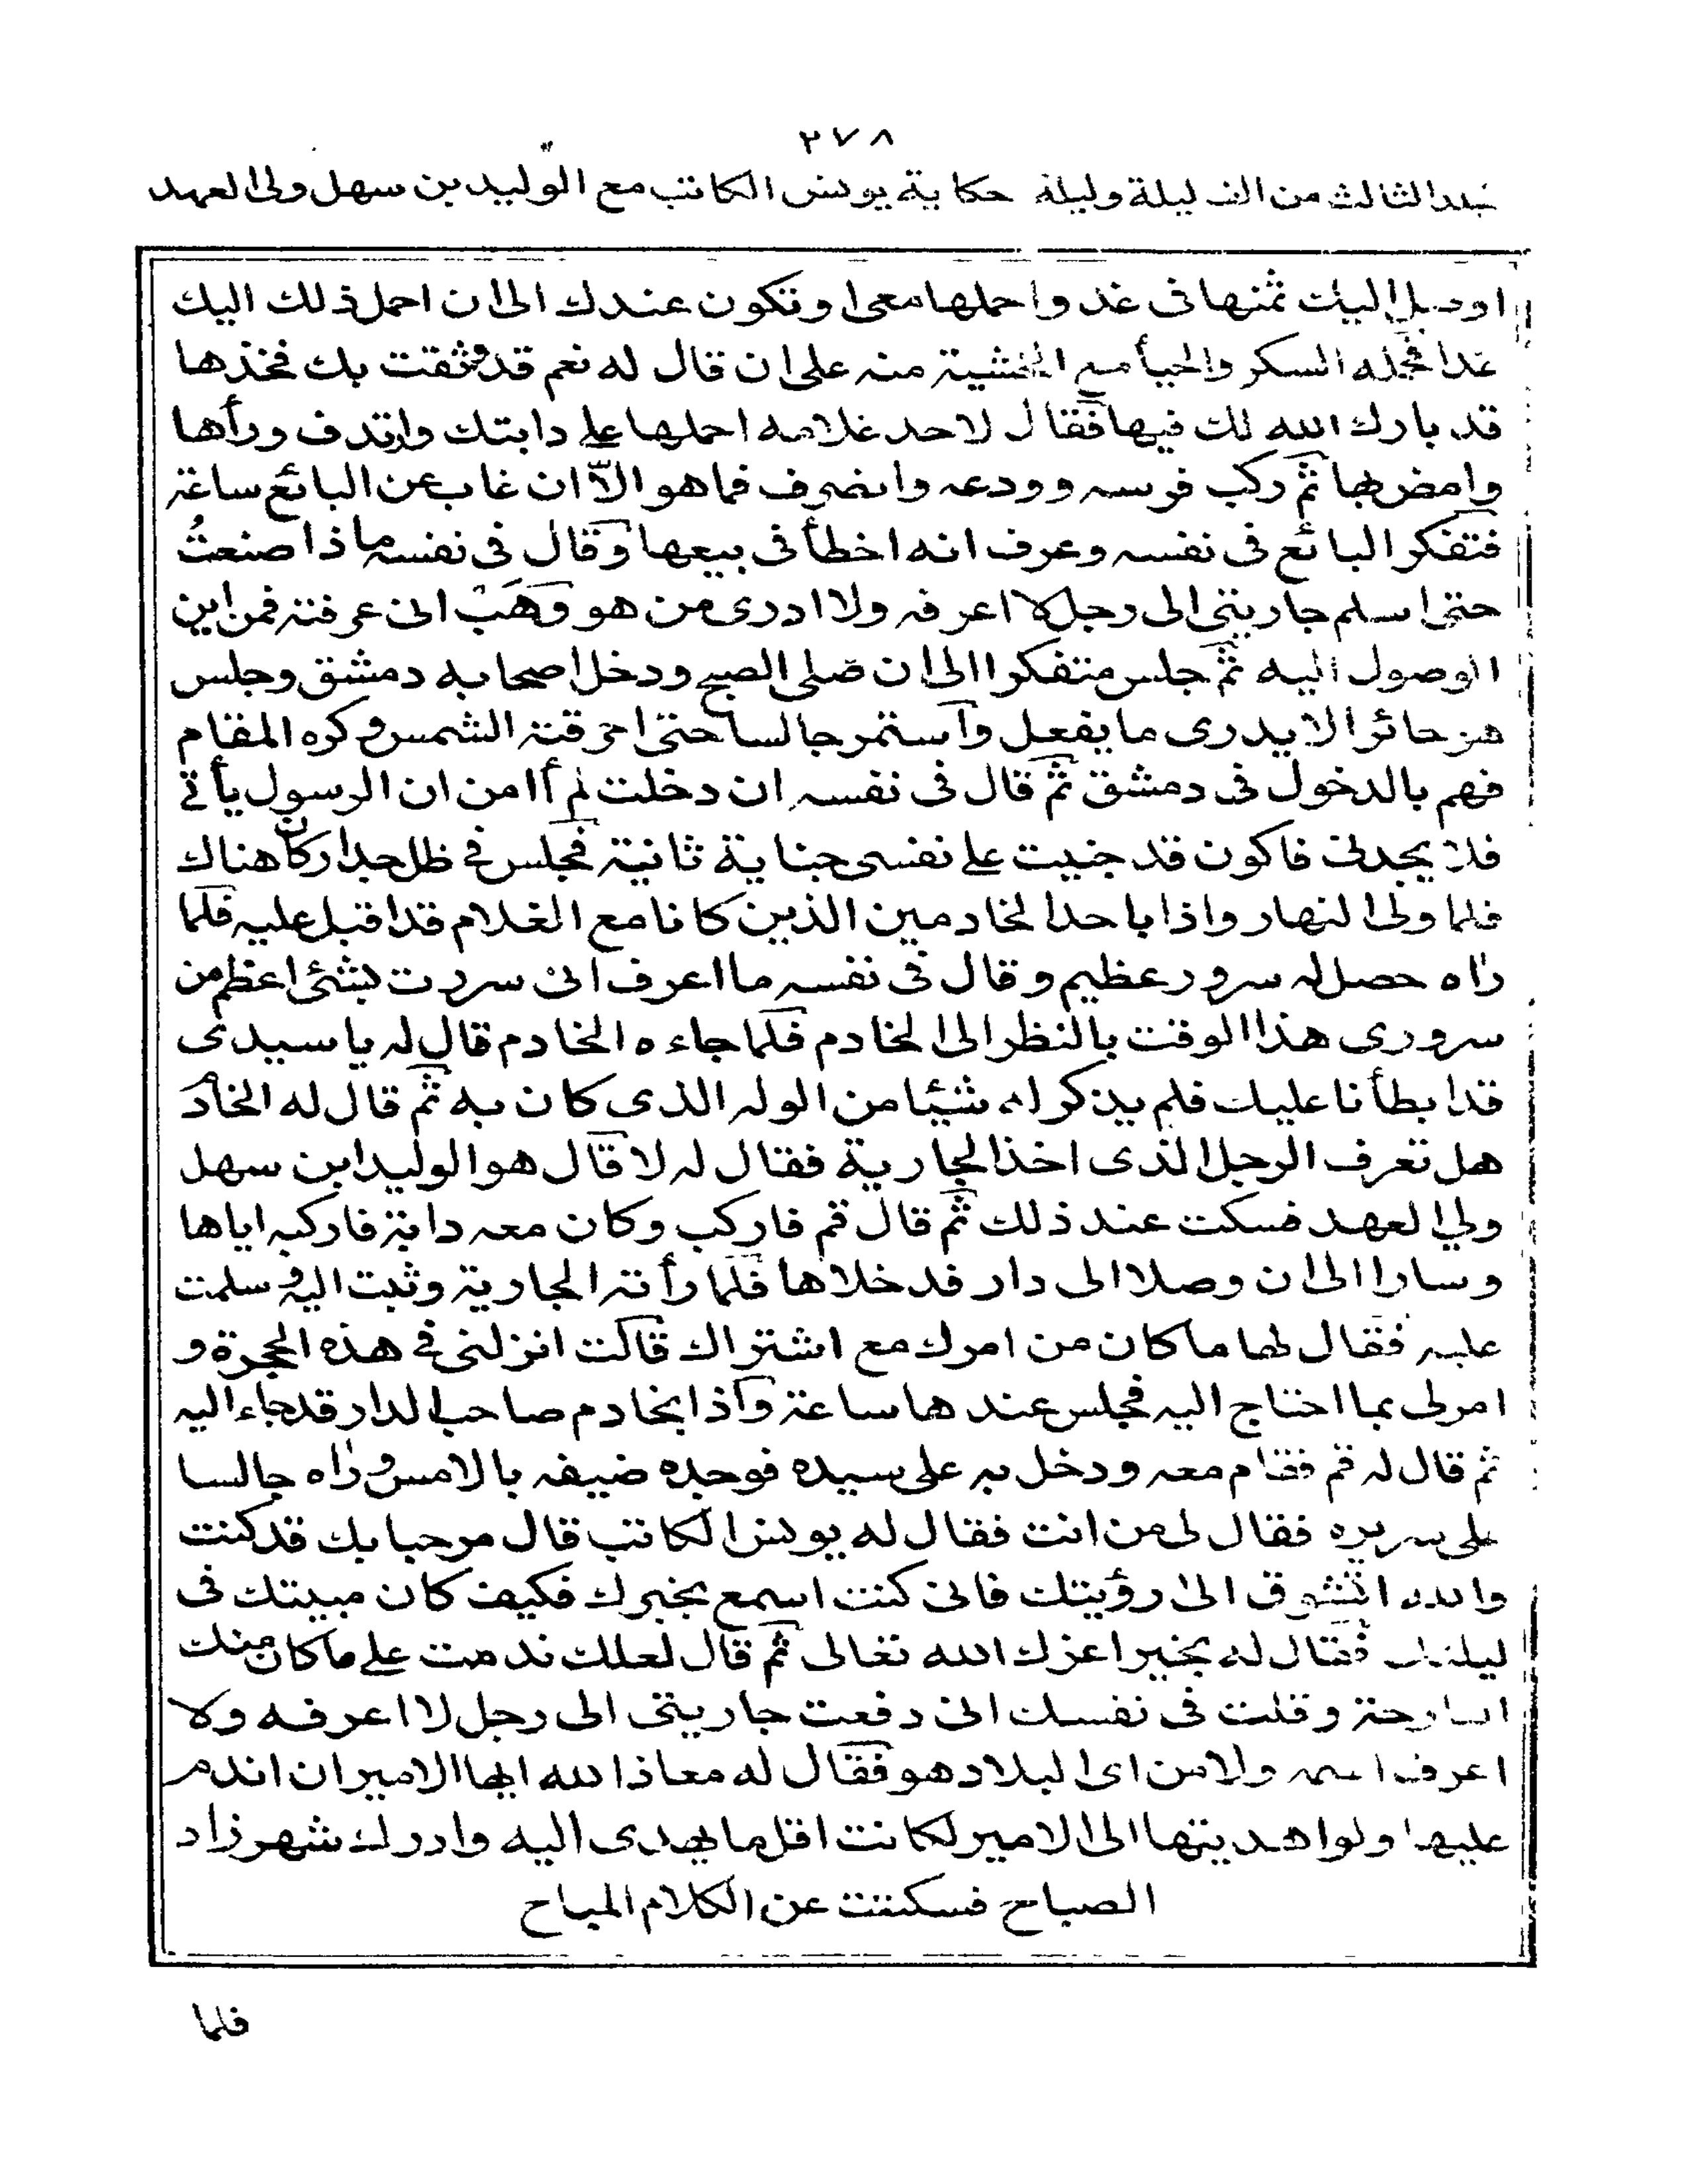 ٢٧٨
الثالث من الف ليلة وليلة حكاية يونس الكاتب مع الوليد بن سهل ولى العهد
اوصل اليك ثمنها فى غد واحملها معى او تكون عندك الى ان احمل ذلك اليك
غدا فحمله السكر والحيأ مع الخشية منه على ان قال له نعم قد وثقت بك فخذها
قد بارك الله لك فيها فقال لاحد غلامه احملها على دابتك وارتدف ورأها
وامض بها ثم ركب فرسه وودعه وانصرف فما هو الّا ان غاب عن البائع ساعة
فتفكر البائع فى نفسه وعرف انه اخطأ فى بيعها وقال فى نفسه ماذا صنعتُ
حتى اسلم جاريتى الى رجل لا اعرفه ولا ادرى من هو وَهَبْ انى عرفته فمن اين
الوصول اليه ثم جلس متفكرا الى ان صلى الصبح ودخل اصحابه دمشق وجلس
هو حائرا لا يدرى ما يفعل واستمر جالسا حتى احرقته الشمس وكره المقام
فهم بالدخول فى دمشق ثم قال فى نفسه ان دخلت لم أامن ان الرسول يأتى
فلا يجدنى فاكون قد جنيت على نفسى جناية ثانية فجلس فى ظل جدار كان هناك
فلما ولى النهار واذا باحد الخادمين الذين كانا مع الغلام قد اقبل عليه فلما
راه حصل له سرور عظيم وقال فى نفسه ما اعرف انى سررت بشئى اعظم من
سرورى هذا الوقت بالنظر الى الخادم فلما جاءه الخادم قال له يا سيدى
قد ابطأنا عليك فلم يذكر له شيئا من الوله الذى كان به ثم قال له الخادم
هل تعرف الرجل الذى اخذ الجارية فقال له لا قال هو الوليد ابن سهل
ولي العهد فسكت عند ذلك ثم قال قم فاركب وكان معه دابة فاركبه اياها
وسارا الى ان وصلا الى دار فدخلاها فلما رأته الجارية وثبت اليه وسلمت
عليه فقال لها ما كان من امرك مع اشتراك قالت انزلنى فى هذه الحجرة و
امر لى بما احتاج اليه فجلس عندها ساعة واذا بخادم صاحب الدار قد جاء اليه
ثم قال له قم فقام معه ودخل به على سيده فوجده ضيفه بالامس وراه جالسا
على سريره فقال لى من انت فقال له يونس الكاتب قال مرحبا بك قد كنت
والله اتشوق الى رؤيتك فانى كنت اسمع بخبرك فكيف كان مبيتك فى
ليلتك فقال له بخير اعزك الله تعالى ثم قال لعلك ندمت على ما كان منك
البارحة وقلت فى نفسك انى دفعت جاريتى الى رجل لا اعرفه ولا
اعرف اسمه ولا من اى البلاد هو فقال له معاذ الله ايها الامير ان اندم
عليها ولو اهديتها الى الامير لكانت اقل ما يهدى اليه وادرك شهرزاد
الصباح فسكتت عن الكلام المباح
فلما